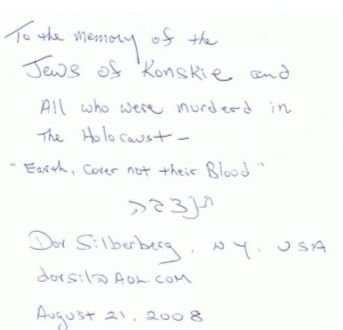 To the memory of the
Jews of Konskie and
All who were murderd in
The Holocaust -
"Earth, Cover not their Blood"
Dor Silberberg, NY. USA
dorsil@AOL.COM
August 21. 2008